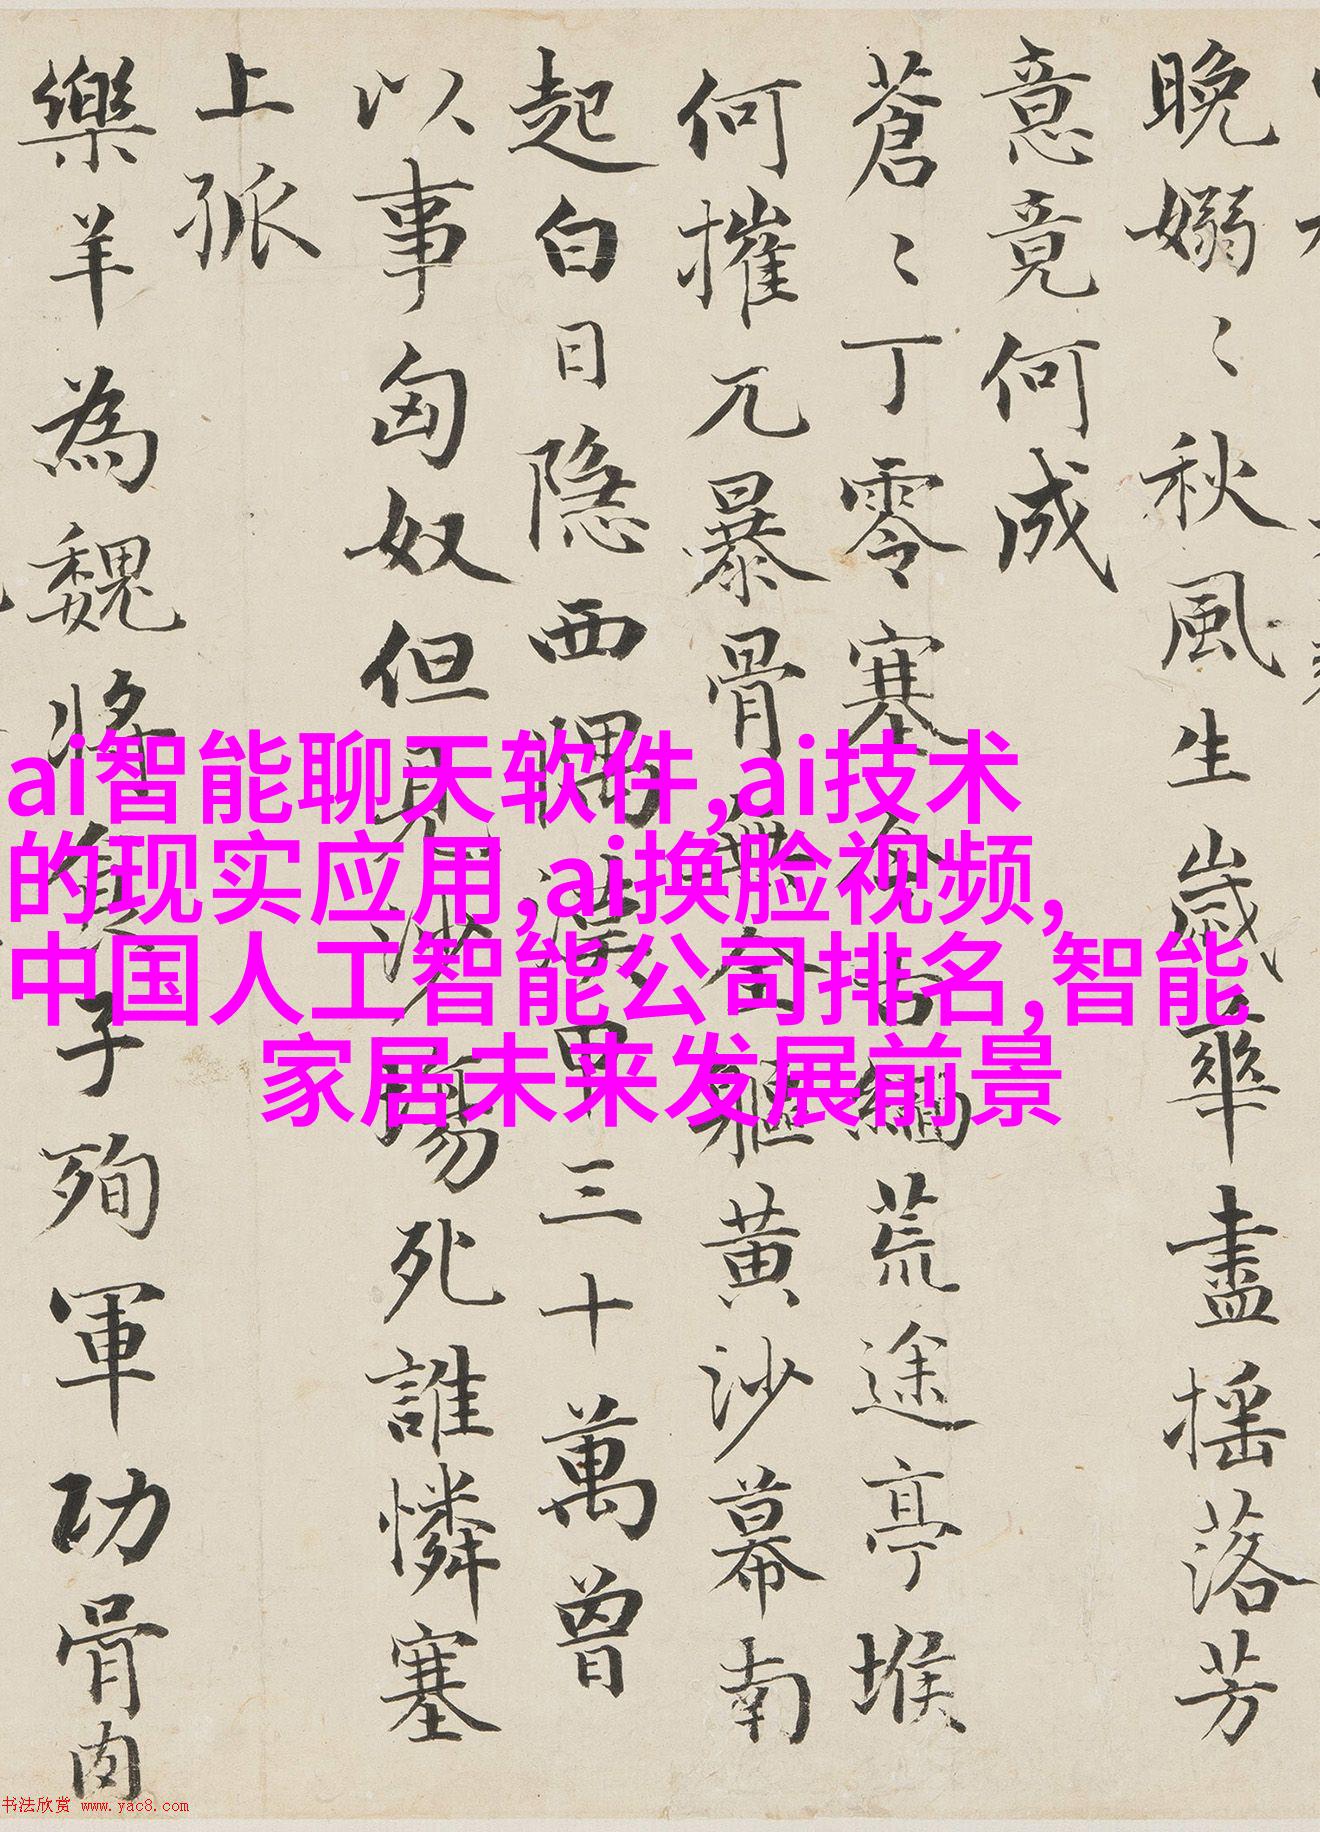 晚嫋〻秋風生歲華盡揺落芳
意竟何成
蒼〻丁零塞今古緬荒途亭堠
何摧兀暴骨無全軀黄沙幕南
起白日隐西隅漢甲三十萬曾
以事匈奴但見沙塲死誰憐塞
上孤
樂羊為魏將食子殉軍功骨肉
ai智能聊天软件,ai技术
的现实应用,ai换脸视频,
中国人工智能公司排名,智能
家居未来发展前景
书法欣赏 www.yac8.com